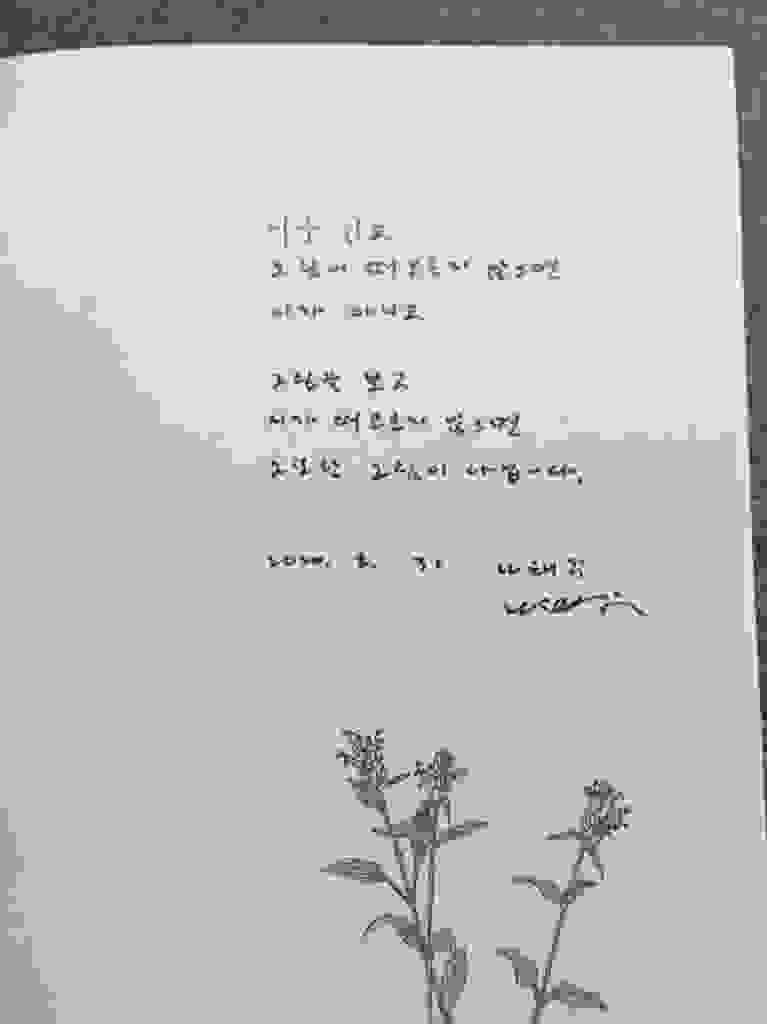 시를 읽고
그림이 떠오르지 않으면
시가 아니고
그림을 보고
시가 떠오르지 않으면
그 또한 그림이 아닙니다.
나태주